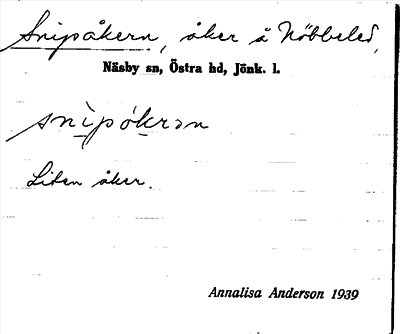 Snipåkern, åker å Nöbbeled,
Näsby sn, Östra hd, Jönk. l.
snìpókrən
Liten åker.
Annalisa Anderson 1939